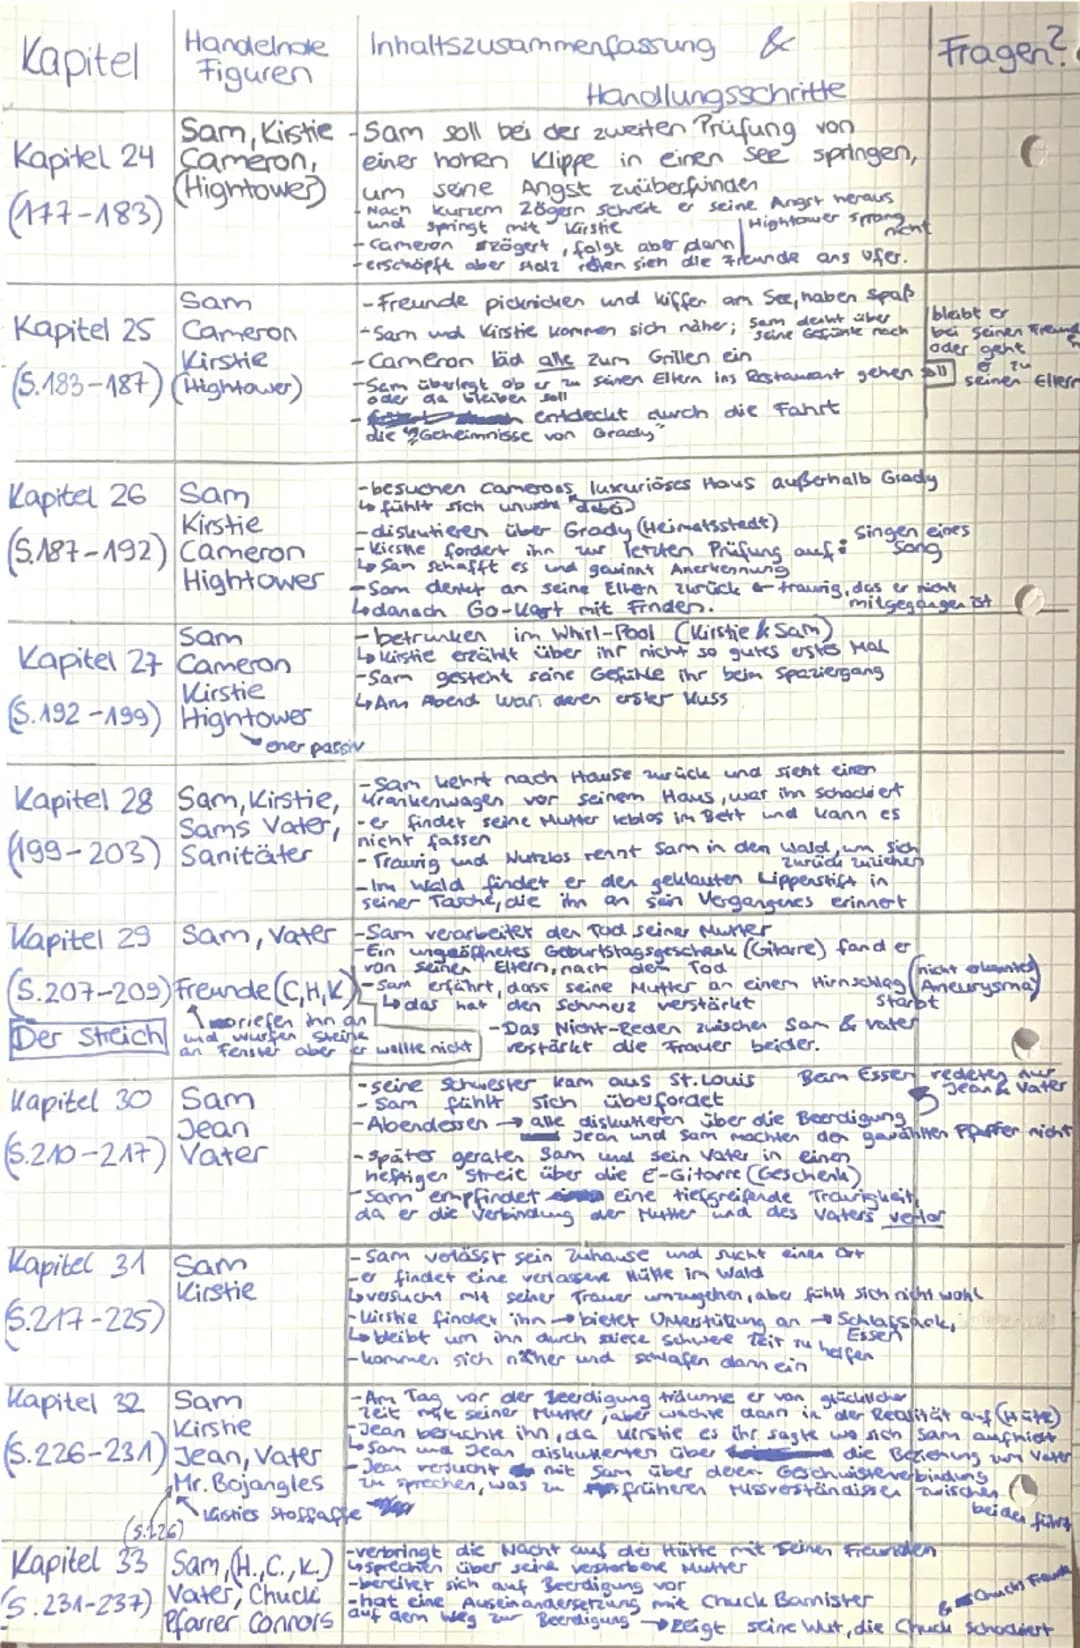 Kapitel
Handelnde
Figuren
Inhaltszusammenfassung &
Handlungsschritte
Fragen?
Kapitel 24
(177-183)
Sam, Kistie
Cameron,
(Hightower)
-Sam soll bei der zweiten Prüfung von
einer hohen Klippe in einen See springen,
um seine Angst zuüberwinden
-Nach kurzem Zögern schreit er seine Angst heraus
und springt mit Kirstie
Hightower sprang
nicht
-Cameron zögert, folgt aber dann
-erschöpft aber stolz retten sich die Freunde ans Ufer.
Kapitel 25
(S.183-187)
Sam
Cameron
Kirstie
(Hightower)
-Freunde picknicken und kiffen am See, haben Spaß
-Sam und Kirstie kommen sich näher; Sam denkt über
seine Gefühle nach
-Cameron läd alle zum Grillen ein
-Sam überlegt ob er zu seinen Eltern ins Restaurant gehen soll
oder da bleiben soll
- entdeckt durch die Fahrt
die "Geheimnisse von Grady"
bleibt er
bei seinen Freunden
oder geht
er zu
seinen Eltern
Kapitel 26
(S.187-192)
Sam
Kirstie
Cameron
Hightower
-besuchen Camerons luxuriöses Haus außerhalb Grady
↳ fühlt sich unwohl dabei
-diskutieren über Grady (Heimatsstadt)
-Kirstie fordert ihn zur letzten Prüfung auf: Singen eines
Song
↳ Sam schafft es und gewinnt Anerkennung
-Sam denkt an seine Eltern zurück & traurig, das er nicht
mitgegangen ist
↳ danach Go-Kart mit Finden.
Kapitel 27
(S.192-199)
Sam
Cameron
Kirstie
Hightower
eher passiv
-betrunken im Whirl-Pool (Kirstie & Sam)
↳ Kistie erzählt über ihr nicht so gutes erstes Mal
-Sam gesteht seine Gefühle ihr beim Spaziergang
↳ Am Abend war deren erster Kuss
Kapitel 28
(199-203)
Sam, Kirstie,
Sams Vater,
Sanitäter
-Sam kehrt nach Hause zurück und sieht einen
Krankenwagen vor seinem Haus, was ihn schockiert
-er findet seine Mutter leblos im Bett und kann es
nicht fassen
-Traurig und Nutzlos rennt Sam in den Wald, um sich
zurück zuziehen
-Im Wald findet er den geklauten Lippenstift in
seiner Tasche, die ihn an sein Vergangenes erinnert
Kapitel 29
(S.207-209)
Der Streich
Sam, Vater
Freunde (C,H,K)
riefen ihn an
und wurfen Steine
an Fenster aber er wollte nicht
-Sam verarbeitet den Tod seiner Mutter
-Ein ungeöffnetes Geburtstagsgeschenk (Gitarre) fand er
von seinen Eltern, nach dem Tod
-Sam erfährt, dass seine Mutter an einem Hirnschlag (nicht erkanntes
Aneurysma)
starbt
↳ das hat den Schmerz verstärkt
-Das Nicht-Reden zwischen Sam & Vater
verstärkt die Trauer beider.
Kapitel 30
(S.210-217)
Sam
Jean
Vater
-seine Schwester kam aus St.Louis
Beim Essen redeten nur
Jean & Vater
-Sam fühlt sich überfordet
-Abendessen → alle diskutieren über die Beerdigung
Jean und Sam mochten den gewählten Pfarrer nicht
-später geraten Sam und sein Vater in einen
heftigen Streit über die E-Gitarre (Geschenk)
-Sam empfindet eine tiefgreifende Traurigkeit,
da er die Verbindung der Mutter und des Vaters verlor
Kapitel 31
(S.217-225)
Sam
Kirstie
-Sam verlässt sein Zuhause und sucht einen Ort
-er findet eine verlassene Hütte im Wald
↳ versucht mit seiner Trauer umzugehen, aber fühlt sich nicht wohl
-Kirstie findet ihn → bietet Unterstützung an → Schlafsack,
Essen
↳ bleibt um ihn durch diese schwere Zeit zu helfen
-kommen sich näher und schlafen dann ein
Kapitel 32
(S.226-231)
Sam
Kirstie
Jean, Vater
Mr. Bojangles
Kisties Stoffaffe
(S.226)
-Am Tag vor der Beerdigung träumte er von glücklicher
Zeit mit seiner Mutter, aber wachte dann in der Realität auf (Hütte)
-Jean besuchte ihn, da Kirstie es ihr sagte wo sich Sam aufhielt
↳ Sam und Jean diskutierten über die Beziehung zum Vater
-Jean versucht mit Sam über deren Geschwisterverbindung
zu sprechen, was zu früheren Missverständissen zwischen
beiden führt
Kapitel 33
(S.231-237)
Sam, (H., C., K.)
Vater, Chuck
Pfarrer Connors
-verbringt die Nacht auf der Hütte mit seinen Freunden
↳ sprechen über seine verstorbene Mutter
-bereitet sich auf Beerdigung vor
-hat eine Auseinandersetzung mit Chuck Bannister
auf dem Weg zur Beerdigung → zeigt seine Wut, die Chuck schockiert
& Chucks